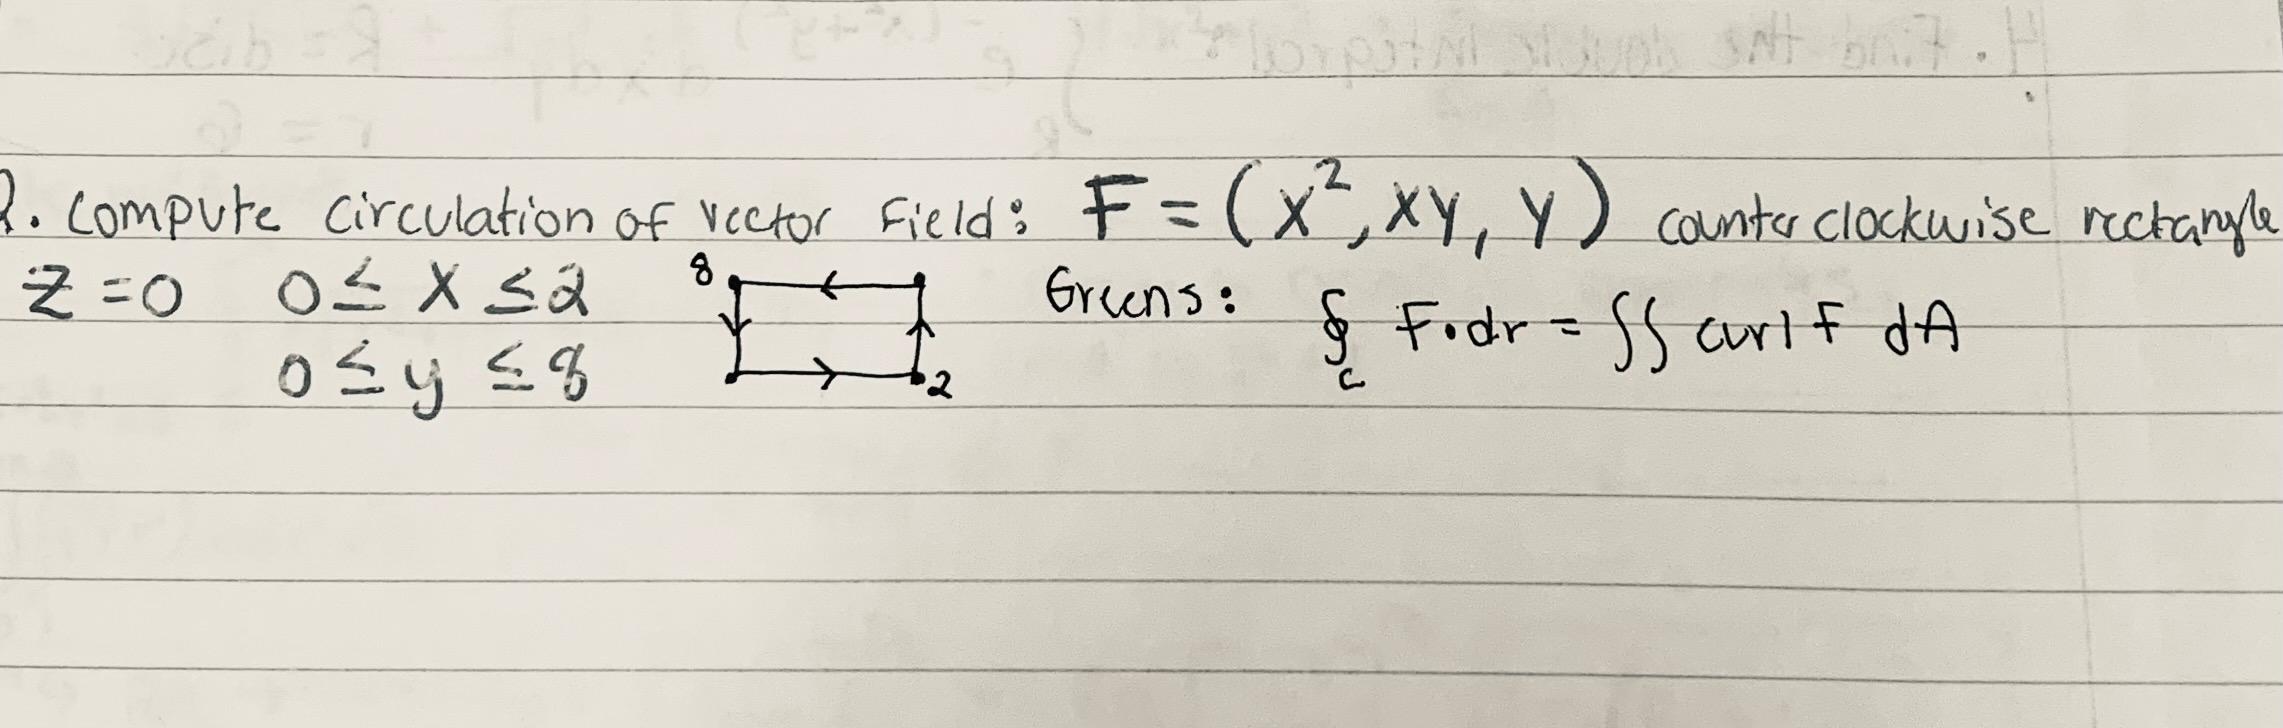 2. compute circulation of vector Field: F = (x², xy, y) counterclockwise rectangle
z=0 0 ≤ x ≤ 2 8 2 Greens: ∮_c F•dr = ∬ curl F dA
0 ≤ y ≤ 8